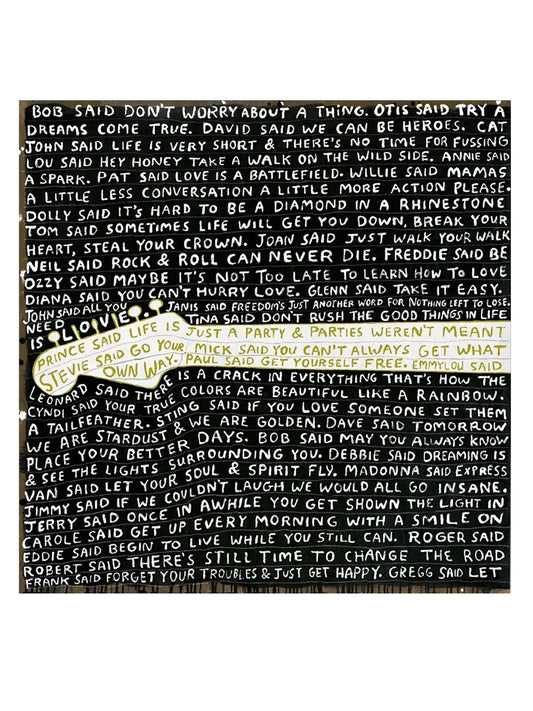 BOB SAID DON'T WORRY ABOUT A THING. OTIS SAID TRY A
DREAMS COME TRUE. DAVID SAID WE CAN BE HEROES. CAT
JOHN SAID LIFE IS VERY SHORT & THERE'S NO TIME FOR FUSSING
LOU SAID HEY HONEY TAKE A WALK ON THE WILD SIDE. ANNIE SAID
A SPARK. PAT SAID LOVE IS A BATTLEFIELD. WILLIE SAID MAMAS
A LITTLE LESS CONVERSATION A LITTLE MORE ACTION PLEASE.
DOLLY SAID IT'S HARD TO BE A DIAMOND IN A RHINESTONE
TOM SAID SOMETIMES LIFE WILL GET YOU DOWN, BREAK YOUR
HEART, STEAL YOUR CROWN. JOAN SAID JUST WALK YOUR WALK
NEIL SAID ROCK & ROLL CAN NEVER DIE. FREDDIE SAID BE
OZZY SAID MAYBE IT'S NOT TOO LATE TO LEARN HOW TO LOVE
DIANA SAID YOU CAN'T HURRY LOVE. GLENN SAID TAKE IT EASY.
JOHN SAID ALL YOU JANIS SAID FREEDOM'S JUST ANOTHER WORD FOR NOTHING LEFT TO LOSE.
NEED TINA SAID DON'T RUSH THE GOOD THINGS IN LIFE
IS LOVE.
PRINCE SAID LIFE IS JUST A PARTY & PARTIES WEREN'T MEANT
STEVIE SAID GO YOUR MICK SAID YOU CAN'T ALWAYS GET WHAT
OWN WAY. PAUL SAID GET YOURSELF FREE. EMMYLOU SAID
LEONARD SAID THERE IS A CRACK IN EVERYTHING THAT'S HOW THE
CYNDI SAID YOUR TRUE COLORS ARE BEAUTIFUL LIKE A RAINBOW.
A TAILFEATHER. STING SAID IF YOU LOVE SOMEONE SET THEM
WE ARE STARDUST & WE ARE GOLDEN. DAVE SAID TOMORROW
PLACE YOUR BETTER DAYS. BOB SAID MAY YOU ALWAYS KNOW
& SEE THE LIGHTS SURROUNDING YOU. DEBBIE SAID DREAMING IS
VAN SAID LET YOUR SOUL & SPIRIT FLY. MADONNA SAID EXPRESS
JIMMY SAID IF WE COULDN'T LAUGH WE WOULD ALL GO INSANE.
JERRY SAID ONCE IN AWHILE YOU GET SHOWN THE LIGHT IN
CAROLE SAID GET UP EVERY MORNING WITH A SMILE ON
EDDIE SAID BEGIN TO LIVE WHILE YOU STILL CAN. ROGER SAID
ROBERT SAID THERE'S STILL TIME TO CHANGE THE ROAD
FRANK SAID FORGET YOUR TROUBLES & JUST GET HAPPY. GREGG SAID LET